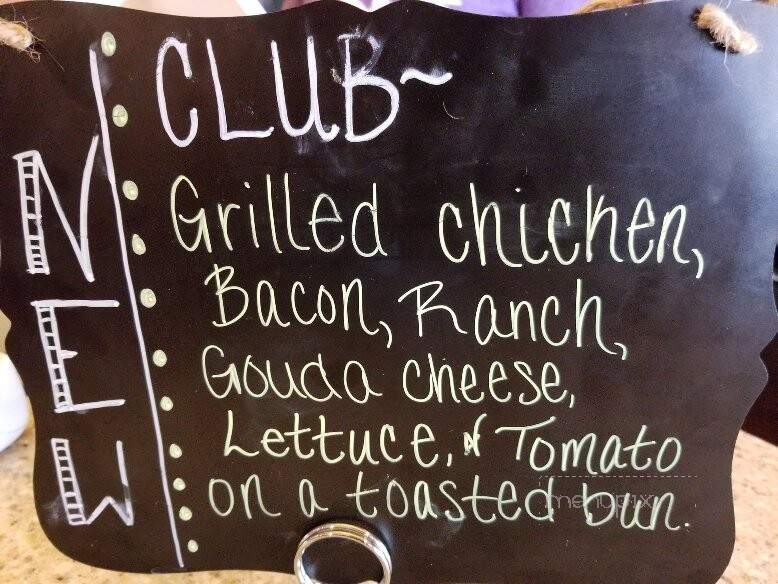 NEW
CLUB~
Grilled chicken,
Bacon, Ranch,
Gouda cheese,
Lettuce, & Tomato
on a toasted bun.
menupix